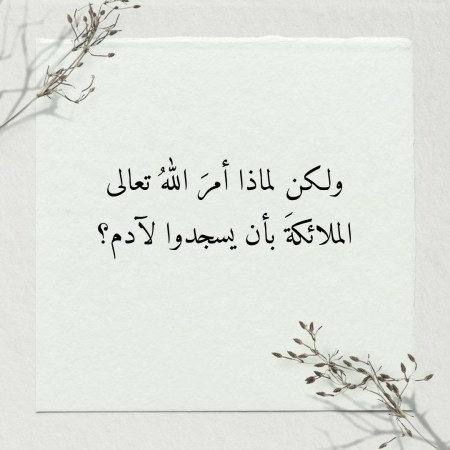 ولكن لماذا أمرَ اللهُ تعالى
الملائكةَ بأن يسجدوا لآدم؟